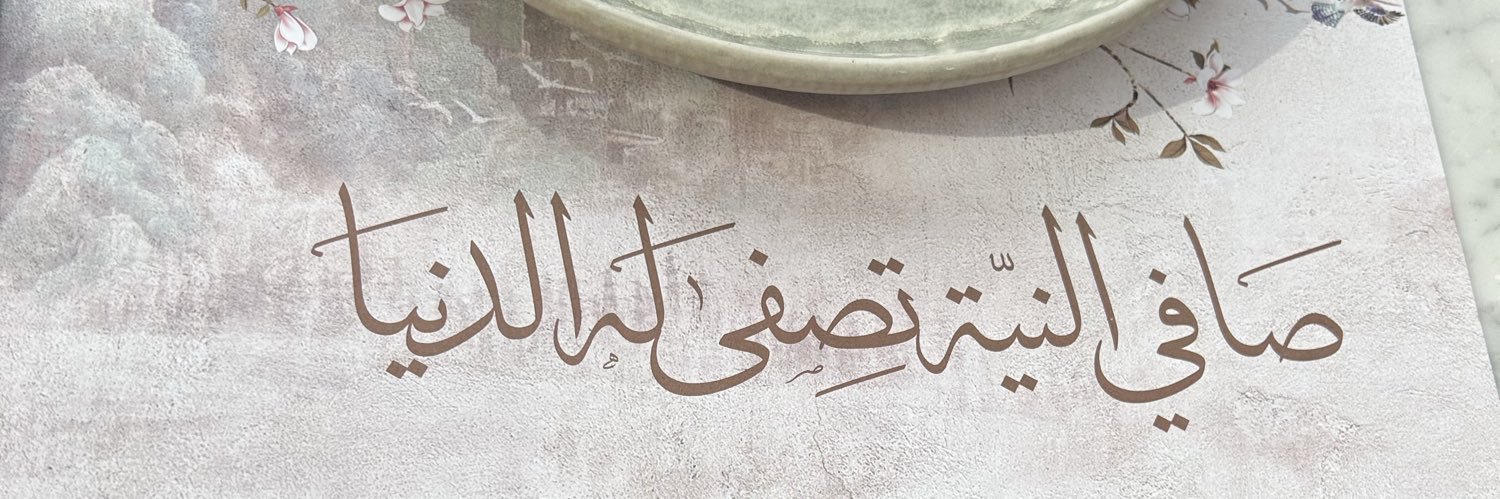 صافي النيّة تصِفىٰ له الدنيا